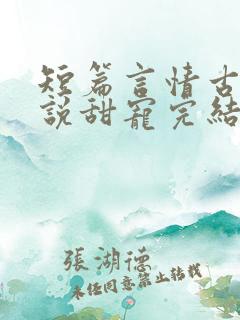 短篇言情古
說甜寵完結
張湖德
未經同意禁止轉載